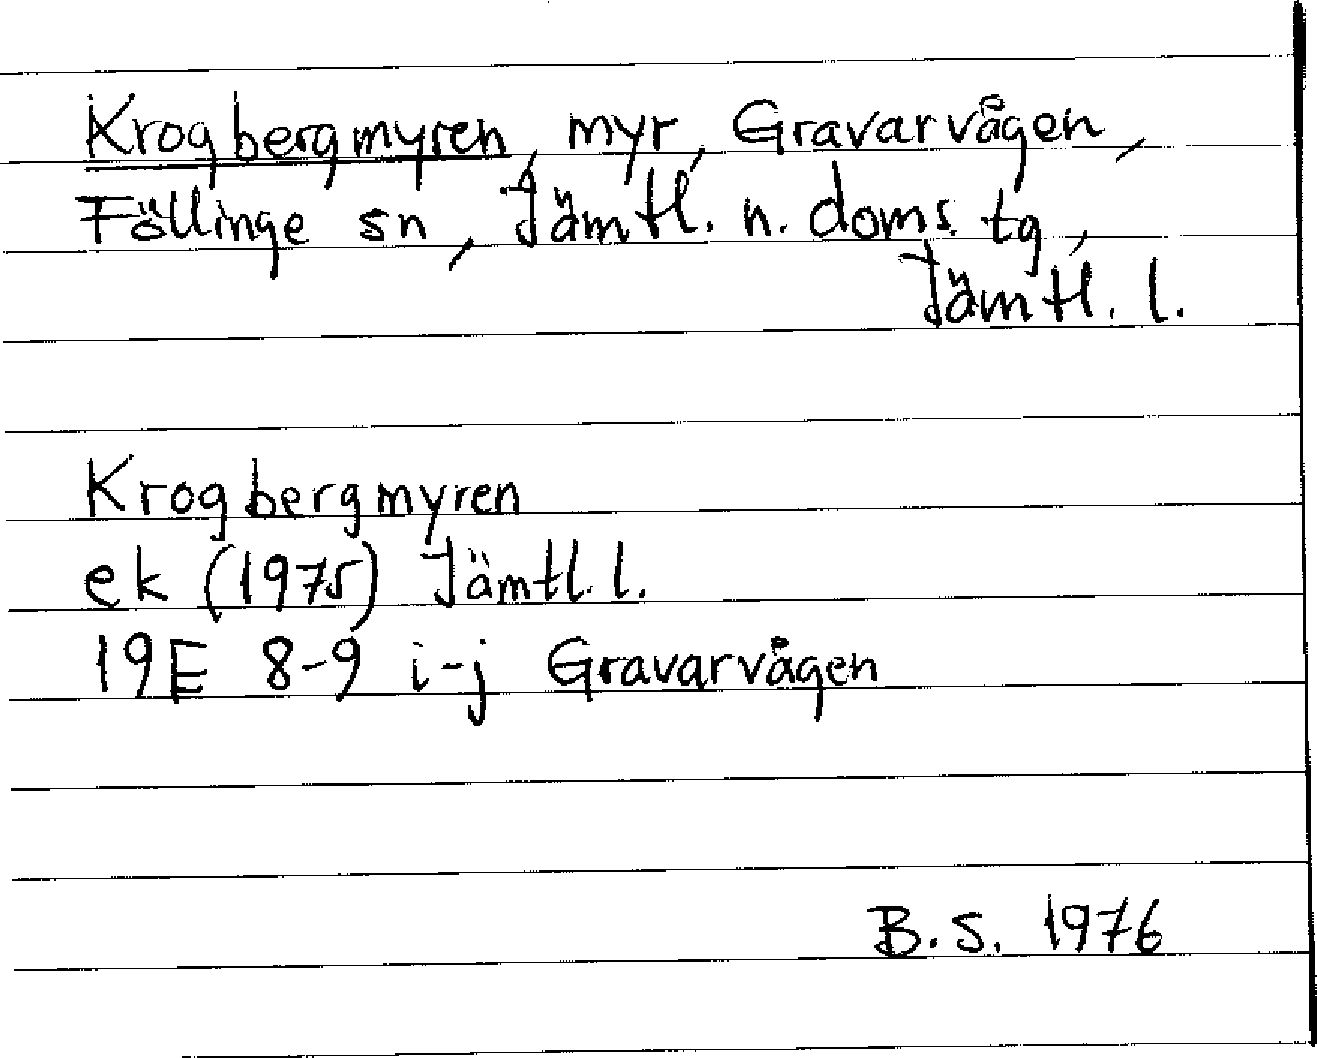 Krogbergmyren, myr, Gravarvågen,
Föllinge sn, Jämtl. n. doms. tg,
Jämtl. l.
Krogbergmyren
ek (1975) Jämtl. l.
19E 8-9 i-j Gravarvågen
B.S. 1976